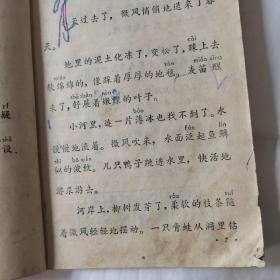 冬过去了，微风悄悄地送来了春
天。
地里的泥土化冻了，变松了，踩上去
软绵绵的，像踩着厚厚的地毯。麦苗醒
来了，舒展着嫩嫩的叶子。
小河里，连一片薄冰也找不到了。水
慢慢地流着。微风吹来，水面泛起鱼鳞
似的波纹。几只鸭子跳进水里，快活地
游来游去。
河岸上，柳树发芽了，柔软的枝条随
着微风轻轻地摆动。一只青蛙从洞里钻
疑
设
· 7 ·